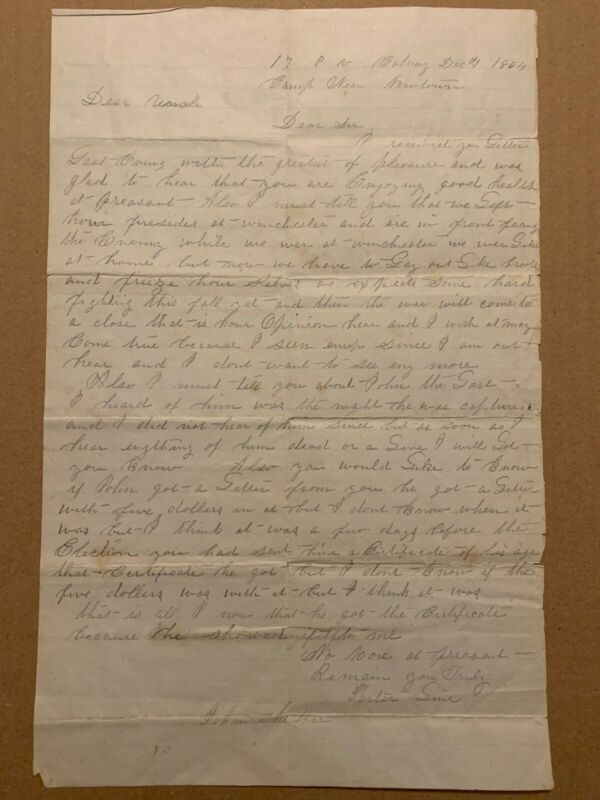 17 P v Calvary Dec 1864
Camp Near Newtown
Dear Uncle
Dear Sir
I received you Letter
Last Evning with the greatest of pleasure and was
glad to hear that you are Enjoying good health
at preasant Also I must tell you that we Left
hour firesides at winchester and are in front faang
the Enemy while we wer at winchester we wer Like
at home but now we have to Lay out Like
and freeze hour selves we expects some hard
fighting this fall yet and then the war will come to
a close that is hour Opinion hear and I wish at may
Come true because I seen enup since I am out
hear and I dont want to see eny more
Also I must tell you about John the Last
I heard of him was the night he was capture
and I did not hear of him since but as soon as I
hear enything of him dead or a Live I will Let
you know Also you would Like to know
if John got a Letter from you he got a Letter
with five dollars in it but I dont know when it
was but I think at was a few days before the
Election you had sent him a Certificate of his age
that Certificate he got but I dont know if the
five dollars was with it but I think it was
that is all I now that he got the Certificate
because he showed it to me
No More at preasant
Remain you Truly
Peter
John